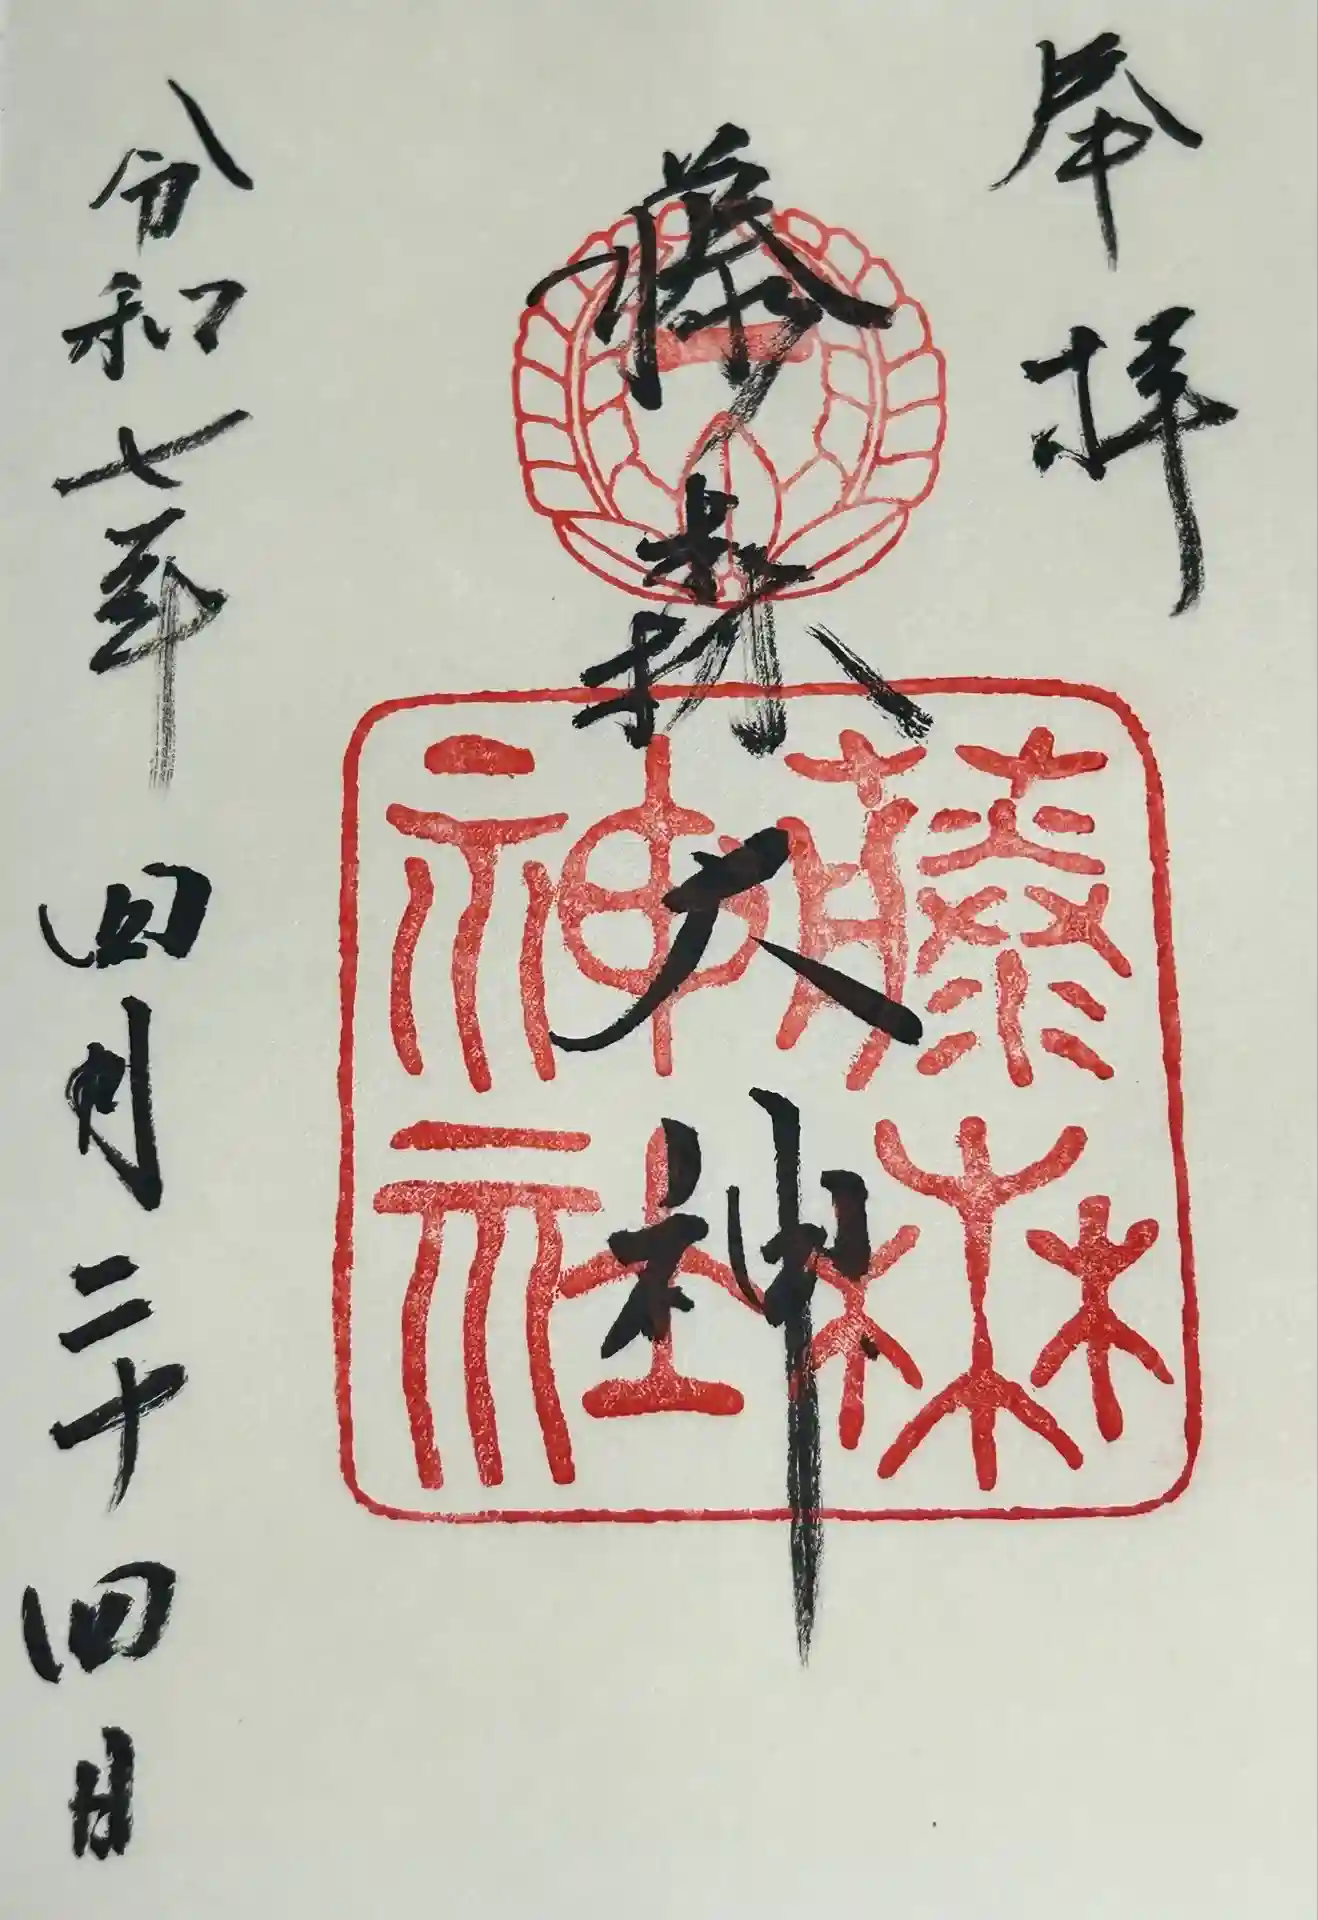 奉拝
藤森大神
令和七年四月二十四日
藤森
神社